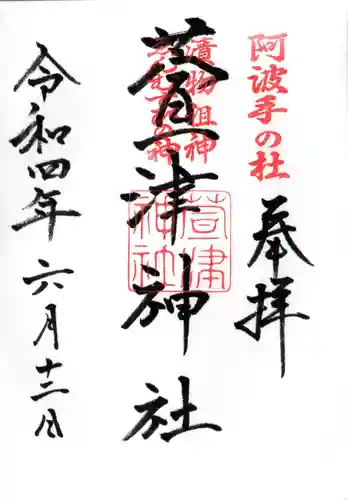 阿波手の杜
奉拝
漬物祖神
萱津神社
萱津神社
令和四年六月十三日